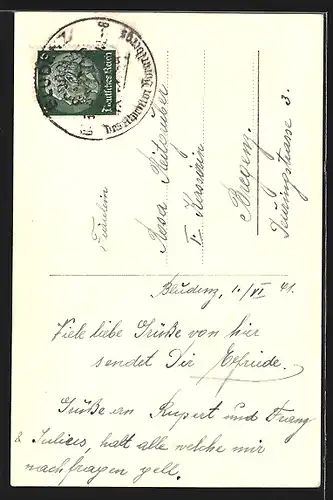 Deutsches Reich
Fräulein
Rosa
Kassierin
Bregenz.
3.
Bludenz, 1./VI 41.
Viele liebe Grüße von hier
sendet Dir Elfriede.
Grüße an Rupert und Franz
& halt alle welche mir
nachfragen gell.